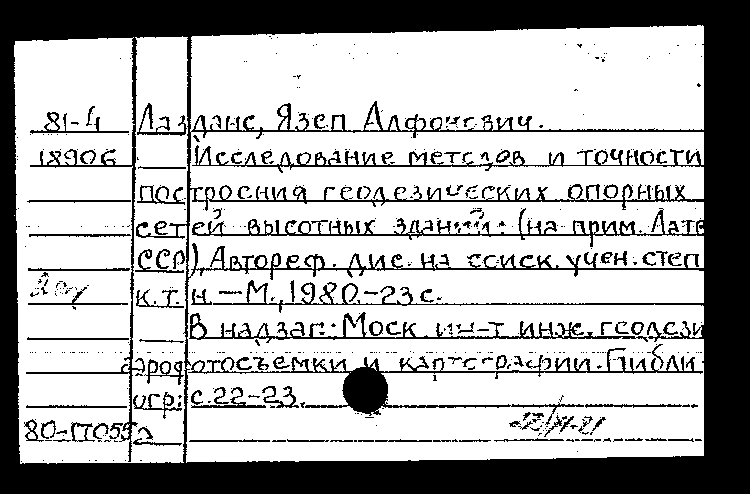 81-4 Лазданс, Язеп Алфонсович.
18906 Исследование методов и точности
построения геодезических опорных
сетей высотных зданий: (на прим. Латв
ССР). Автореф. дис. на соиск. учен. степ
к.т.н. — М., 1980. — 23 с.
В надзаг.: Моск. ин-т инж. геодези
аэрофотосъемки и картографии. Библи-
огр.: с. 22-23.
80-17055а